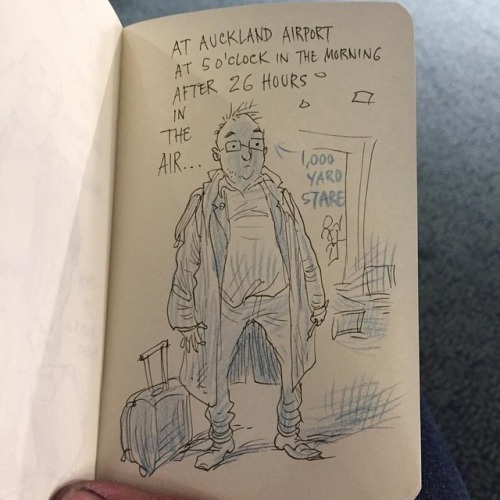 AT AUCKLAND AIRPORT
AT 5 O'CLOCK IN THE MORNING
AFTER 26 HOURS
IN
THE
AIR...
1,000
YARD
STARE